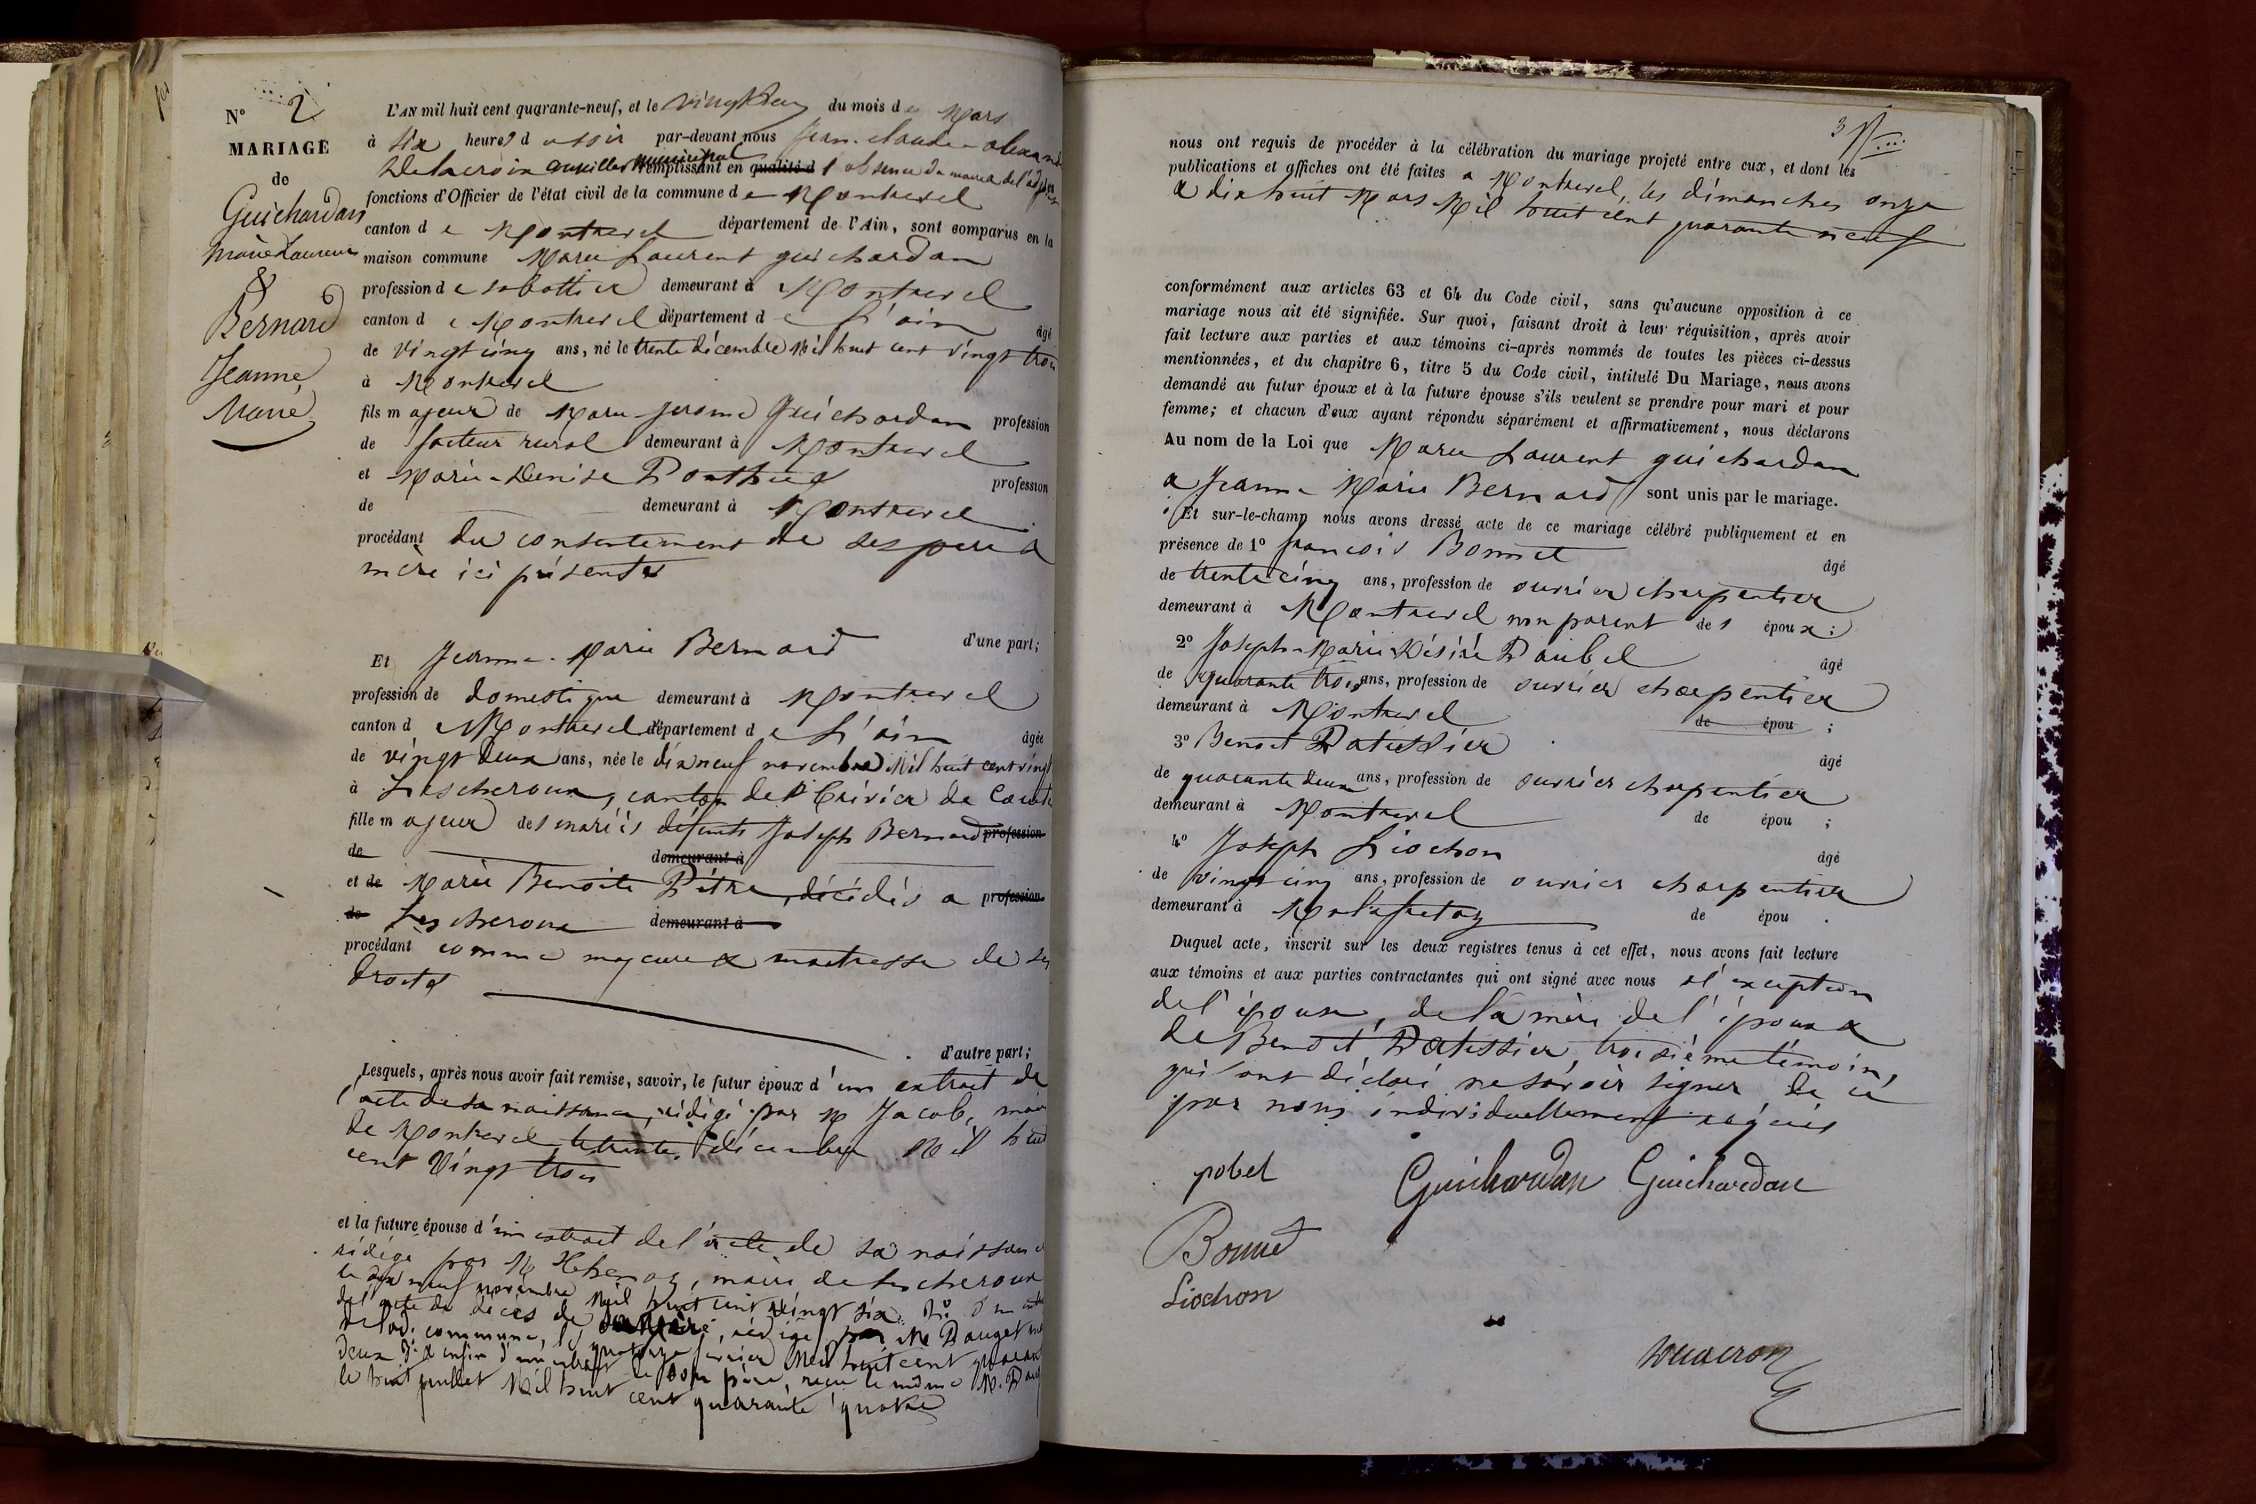 N° 2
MARIAGE
de
Guichardan
Marie Laurent
&
Bernard
Jeanne
Marie
L'AN mil huit cent quarante-neuf, et le vingt deux du mois de Mars
à six heures d u soir par-devant nous Jean-claude-alexandre
Delacroix conseiller municipal remplissant en qualité d l'absence du maire & de l'adjoint les
fonctions d'Officier de l'état civil de la commune de Montrevel
canton de Montrevel département de l'Ain, sont comparus en la
maison commune Marie Laurent guichardan
profession de sabottier demeurant à Montrevel
canton de Montrevel département de L'ain âgé
de vingt cinq ans, né le trente décembre Mil huit cent vingt trois
à Montrevel
fils majeur de Marie-Jerome Guichardan profession
de facteur rural demeurant à Montrevel
et Marie-Denise Ponthus profession
de demeurant à Montrevel
procédant du consentement de ses pere &
mère ici présents
d'une part;
Et Jeanne-Marie Bernard
profession de domestique demeurant à Montrevel
canton de Montrevel département de L'ain âgée
de vingt deux ans, née le dix neuf novembre Mil huit cent vingt
à Lescheroux, canton de St Trivier de Courtes
fille majeure des mariés défunts Joseph Bernard profession
de demeurant à
et de Marie Benoite Pitre, décédés a profession
de Lescheroux demeurant à
procédant comme majeure & maitresse de ses
droits
d'autre part;
Lesquels, après nous avoir fait remise, savoir, le futur époux d'un extrait de
l'acte de sa naissance, rédigé par M Jacob, maire
de Montrevel, le trente décembre Mil huit
cent vingt trois
et la future épouse d'un extrait de l'acte de sa naissance
rédigé par M, maire de Lescheroux
le dix neuf novembre Mil huit cent vingt six, 2° d'un extrait
de l'acte de décès de sa mère, rédigé par M. Pauget maire
de lad. commune, le quatorze janvier Mil huit cent quarante
deux 3° & enfin d'un extrait de son père, reçu le même M. Pauget
le huit juillet Mil huit cent quarante quatre
3
nous ont requis de procéder à la célébration du mariage projeté entre eux, et dont les
publications et affiches ont été faites a Montrevel, les dimanches onze
& dix huit Mars Mil huit cent quarante neuf
conformément aux articles 63 et 64 du Code civil, sans qu'aucune opposition à ce
mariage nous ait été signifiée. Sur quoi, faisant droit à leur réquisition, après avoir
fait lecture aux parties et aux témoins ci-après nommés de toutes les pièces ci-dessus
mentionnées, et du chapitre 6, titre 5 du Code civil, intitulé Du Mariage, nous avons
demandé au futur époux et à la future épouse s'ils veulent se prendre pour mari et pour
femme; et chacun d'eux ayant répondu séparément et affirmativement, nous déclarons
Au nom de la Loi que Marie Laurent guichardan
& Jeanne Marie Bernard sont unis par le mariage.
Et sur-le-champ nous avons dressé acte de ce mariage célébré publiquement et en
présence de 1° françois Bonnet âgé
de trente cinq ans, profession de ouvrier charpentier
demeurant à Montrevel non parent des époux;
2° Joseph-Marie-Désiré Paubel âgé
de quarante trois ans, profession de ouvrier charpentier
demeurant à Montrevel de épou ;
3° Benoit Patissier âgé
de quarante deux ans, profession de ouvrier charpentier
demeurant à Montrevel de épou ;
4° Joseph Liochon âgé
de vingt cinq ans, profession de ouvrier charpentier
demeurant à Malafretaz de épou .
Duquel acte, inscrit sur les deux registres tenus à cet effet, nous avons fait lecture
aux témoins et aux parties contractantes qui ont signé avec nous à l'exception
de l'épouse, de la mère de l'époux &
de Benoit Patissier troisième témoin,
qui ont déclaré ne savoir signer de ce
par nous individuellement requis
pobel Guichardan Guichardan
Bonnet
Liochon